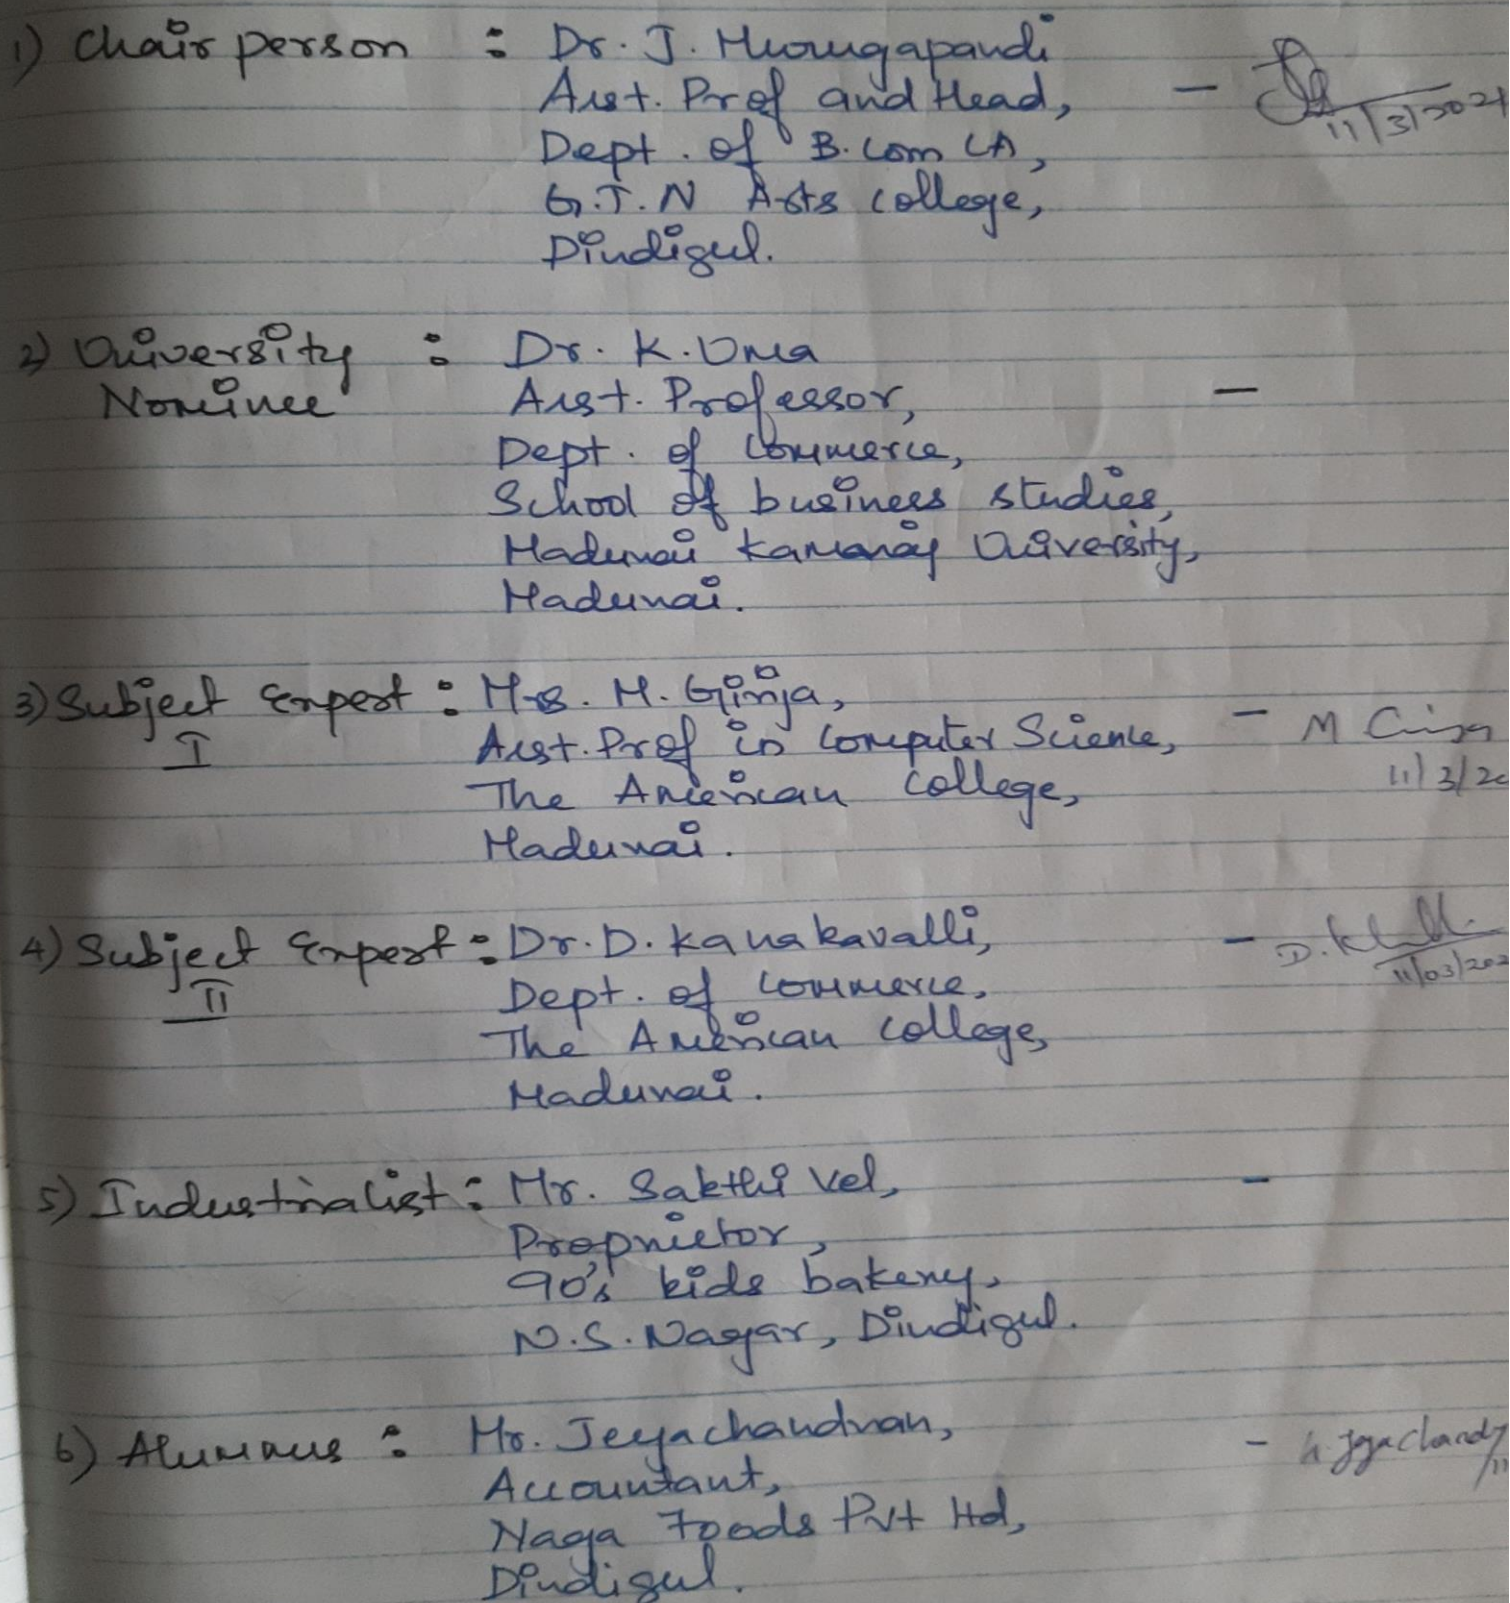 1) Chair person : Dr. J. Murugapandi
Asst. Prof and Head, -
11/3/2024
Dept. of B.Com CA,
G.T.N Arts College,
Dindigul.
2) University : Dr. K. Uma
Nominee Asst. Professor, -
Dept. of Commerce,
School of business studies,
Madurai Kamaraj University,
Madurai.
3) Subject Expert : Mrs. M. Girija,
I Asst. Prof in Computer Science, - M Girija
11/3/20
The American College,
Madurai.
4) Subject Expert : Dr. D. Kanakavalli, - D.
II Dept. of Commerce, 11/03/202
The American College,
Madurai.
5) Industrialist : Mr. Sakthi Vel, -
Proprietor,
90's kids bakery,
N.S. Nagar, Dindigul.
6) Alumnus : Mr. Jeyachandran, - Jeyachand
Accountant, 11
Naga Foods Pvt Ltd,
Dindigul.